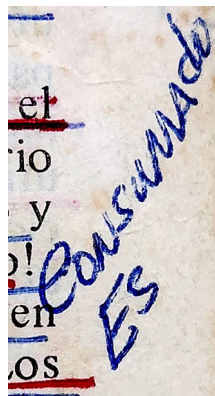 el
rio
y
o!
en
Los
Consumado
ES